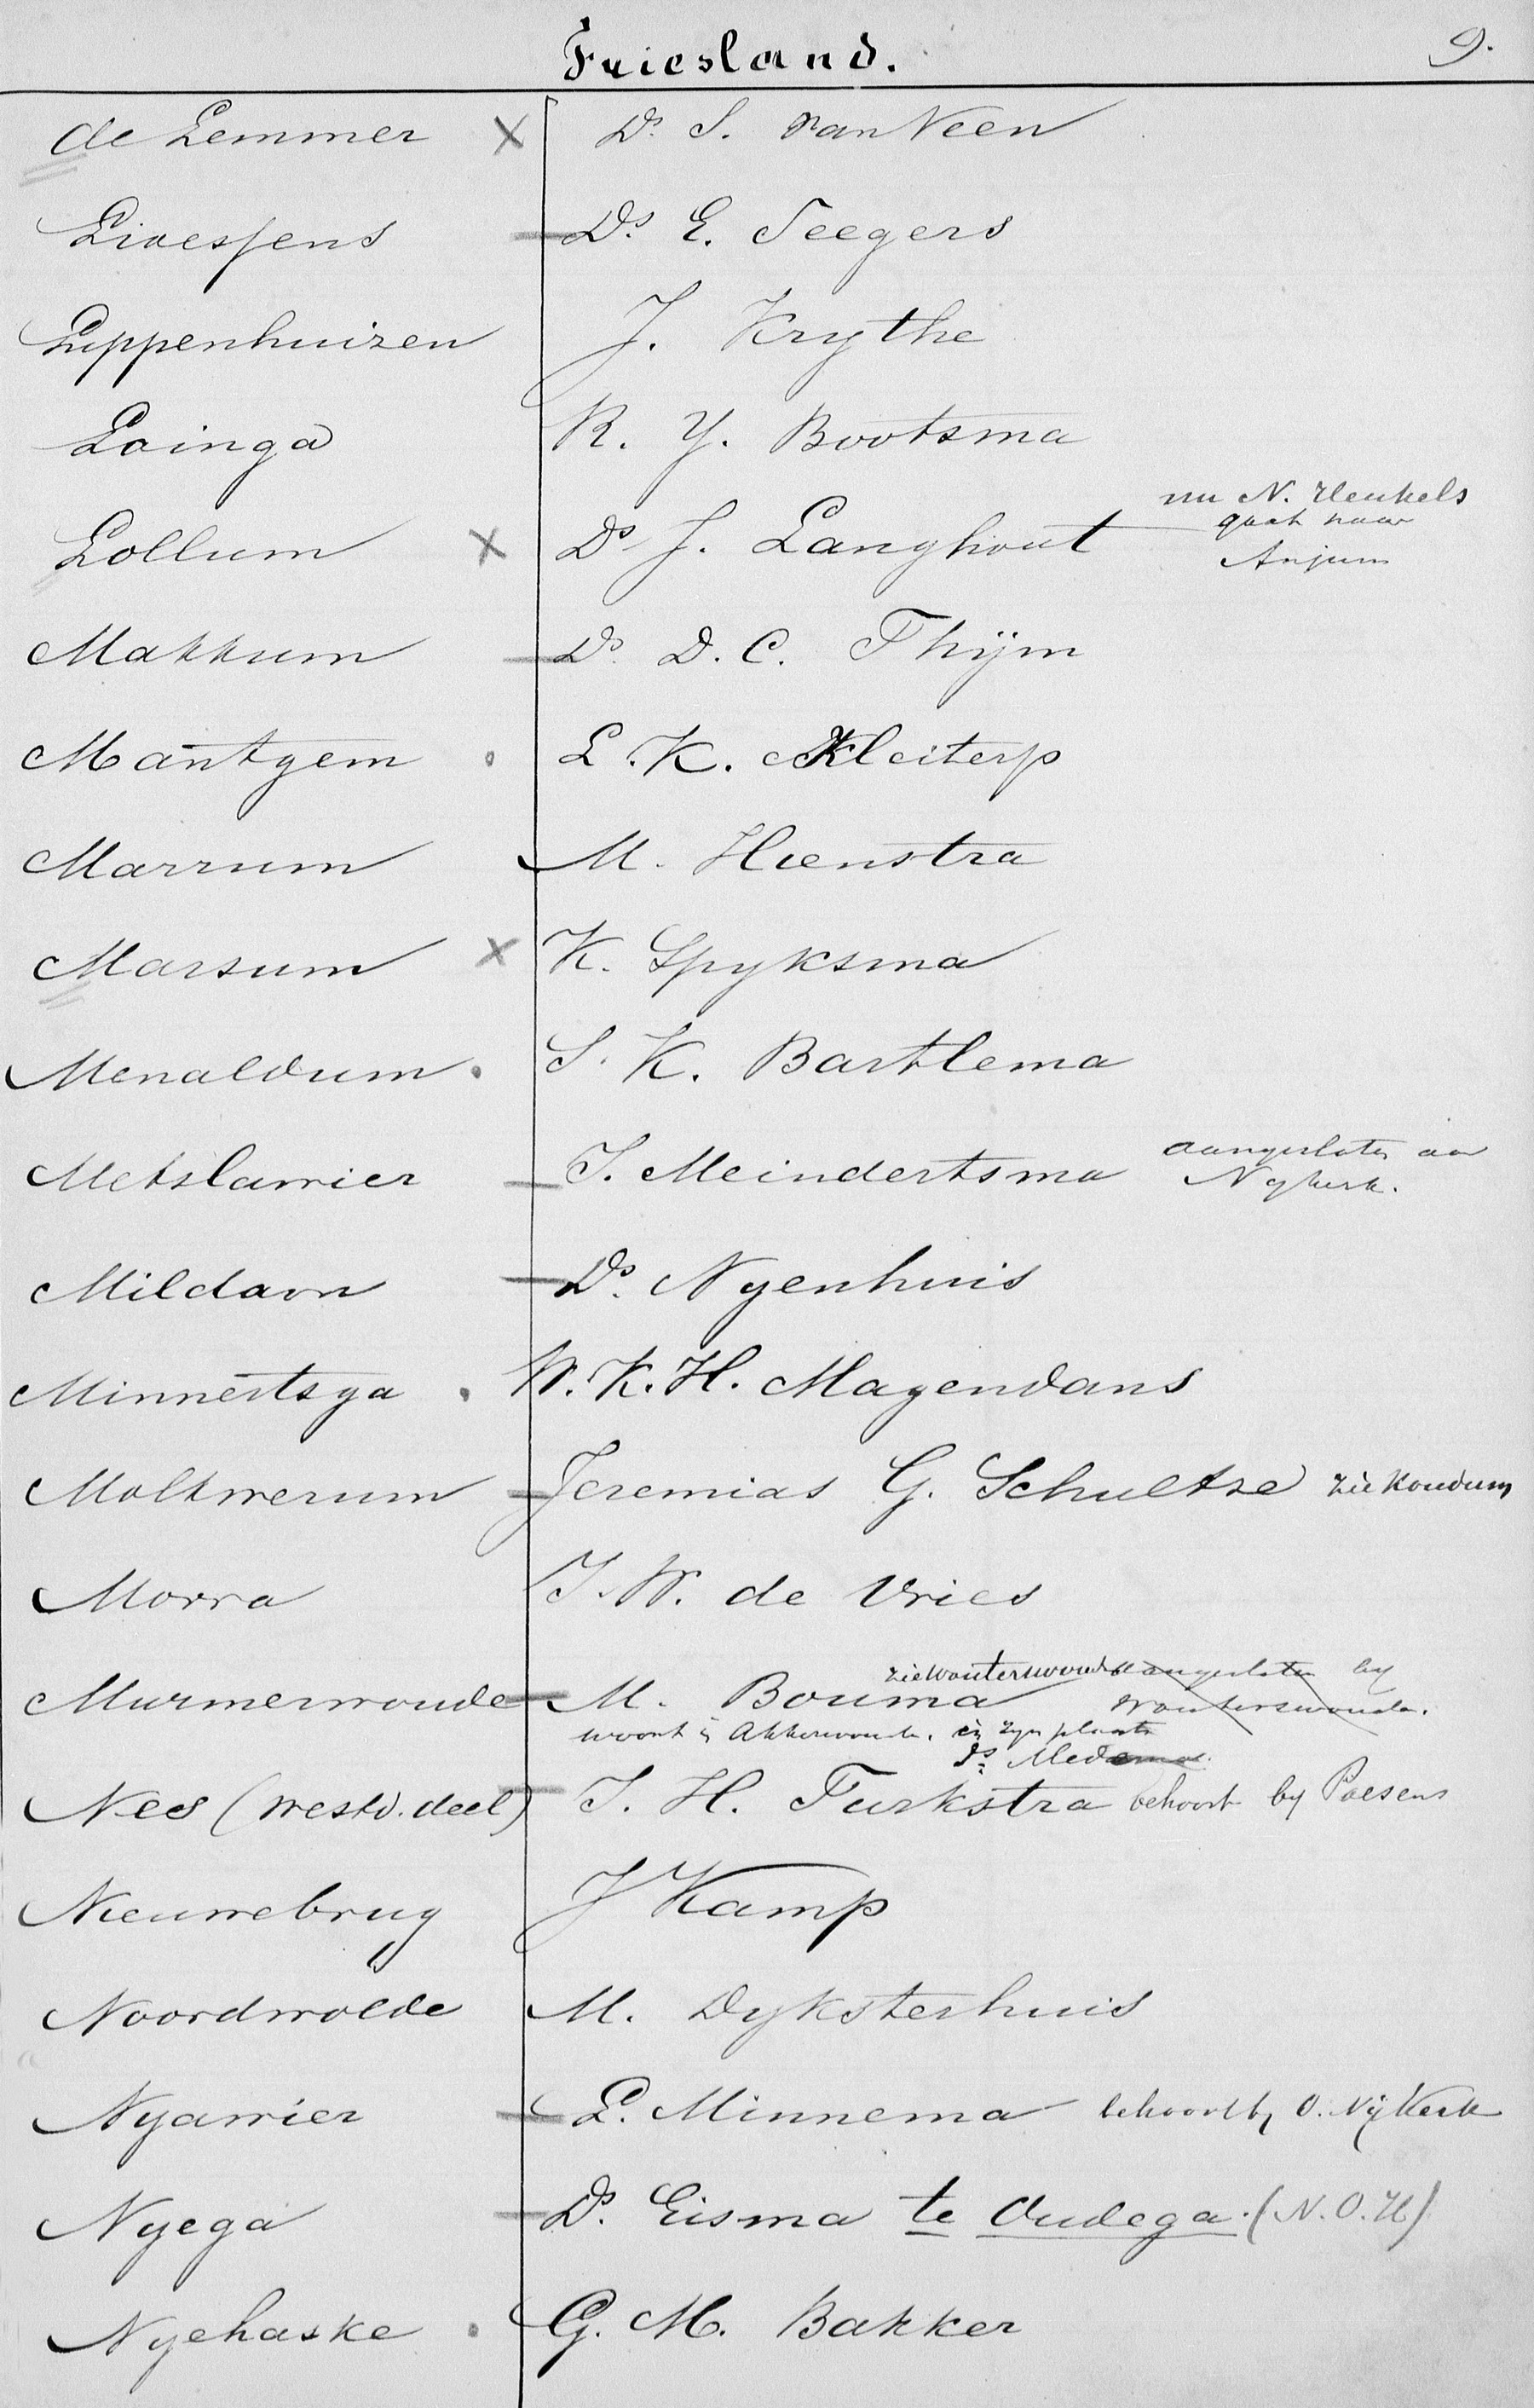 Friesland. 9.
de Lemmer x Ds. S. van Veen
Lioessens Ds. E. Seegers
Lippenhuizen J. Krythe
Loinga R. Y. Bootsma
nu N. Heukels
Lollum x Ds. J. Langhout gaat naar
Anjum
Makkum Ds. D. C. Thijm
Mantgem L. K. Kleiterp
Marrum M. Hienstra
Marsum x K. Spyksma
Menaldum S. K. Bartlema
Metslawier J. Meindertsma aangesloten aan
Nykerk.
Mildam Ds. Nyenhuis
Minnertsga W. K. H. Magendans
Molkwerum Jeremias G. Schultze zie Koudum
Morra J. W. de Vries
zie Wouterswoude aangesloten by
Murmerwoude M. Bouma Wouterswoude.
woont in Akkerwoude. in zyn plaats
ds. Medema
Nes (westd. deel) J. H. Turkstra behoort by Paesens
Nieuwebrug J Kamp
Noordwolde M. Dyksterhuis
Nyawier L. Minnema behoort by O. NijKerk
Nyega Ds. Eisma te Oudega. (N. O. H)
Nyehaske G. M. Bakker